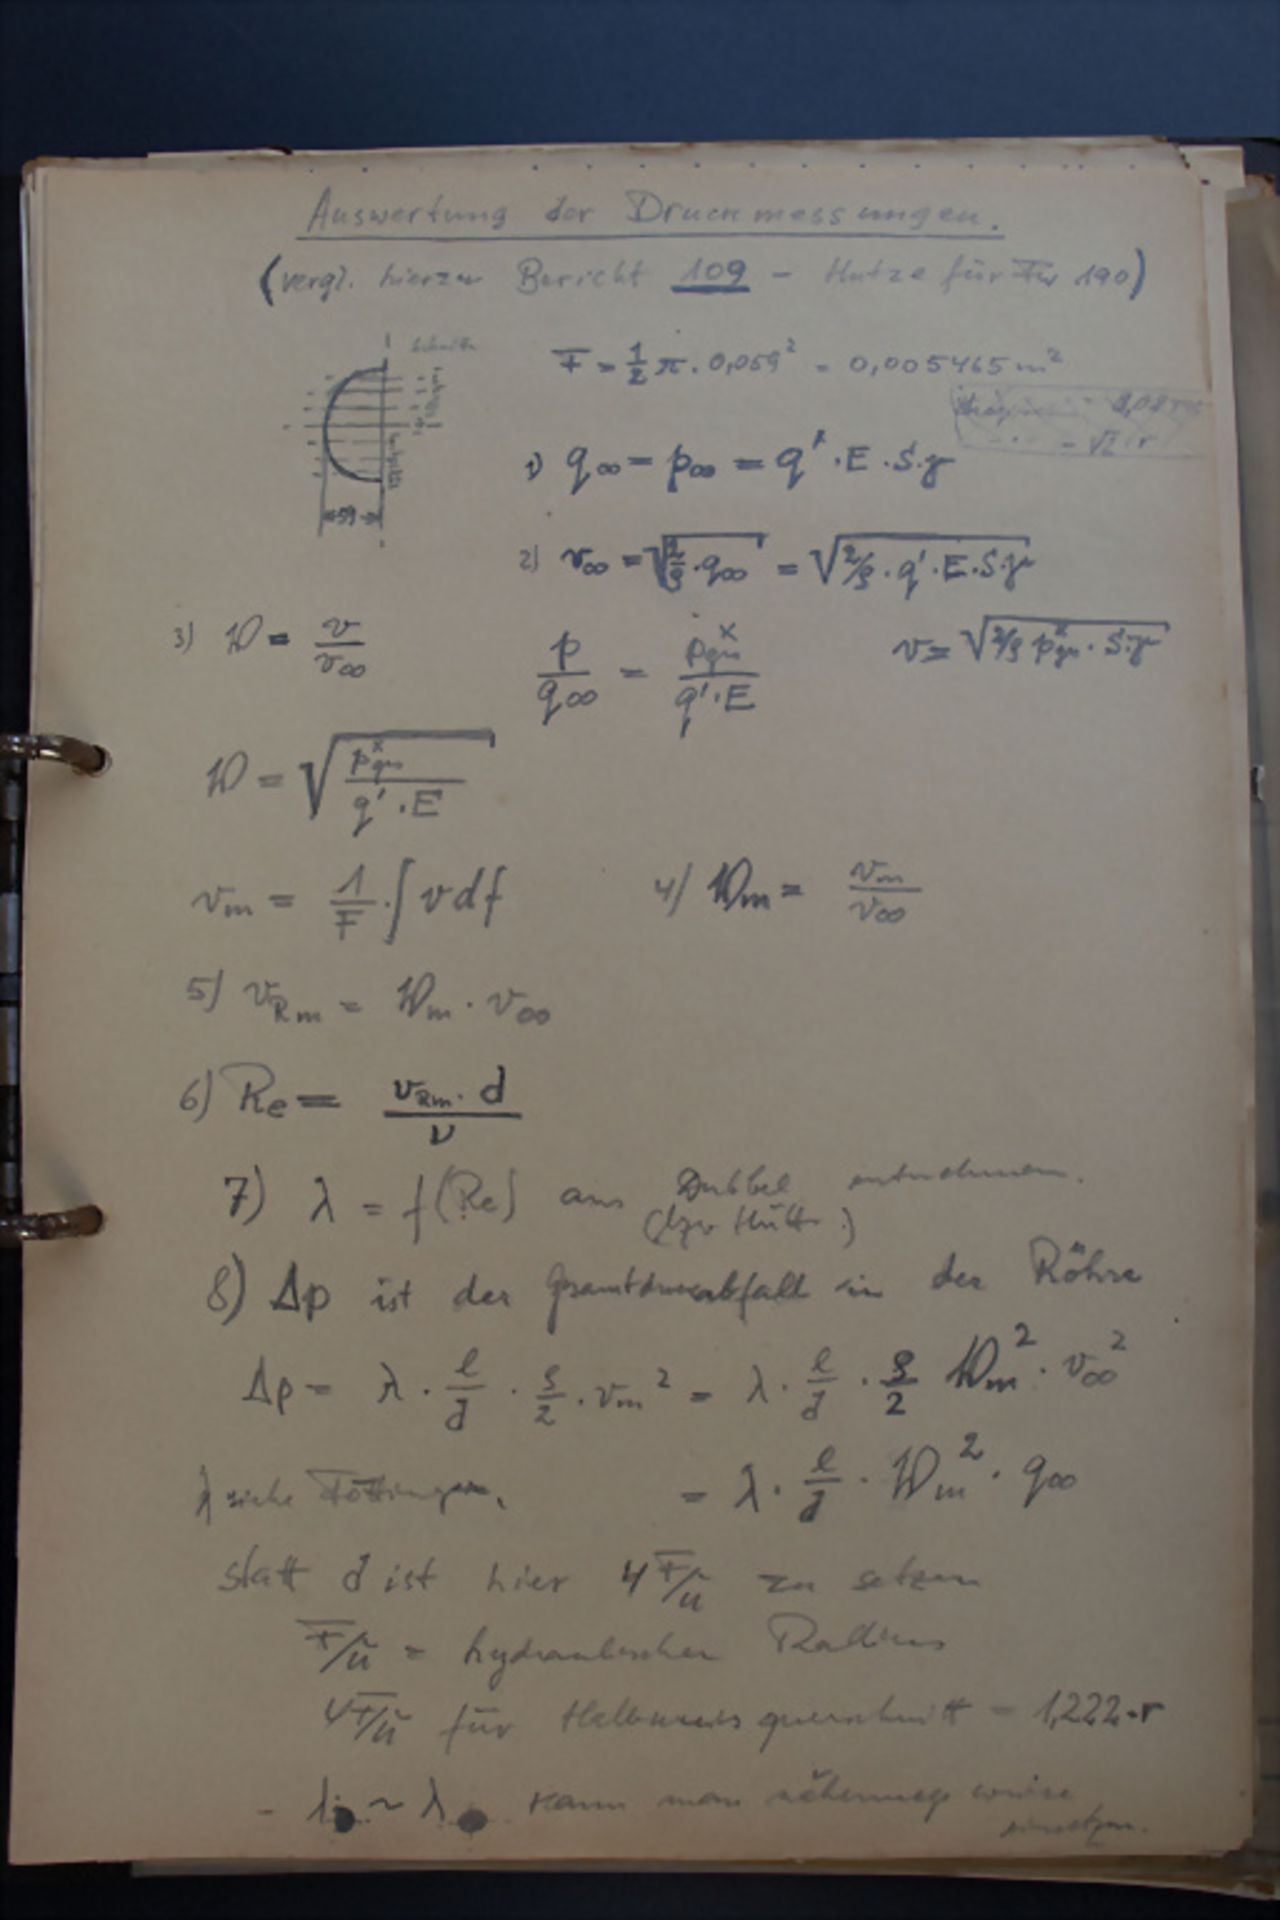 Auswertung der Druckmessungen.
(vergl. hierzu Bericht 109 - Hutze für Fw 190)
F = 1/2 π · 0,059² = 0,005465 m²
- √2 · r
1) q∞ = p∞ = q' · E · S · γ
59
2) v∞ = √(2/ρ · q∞) = √(2/ρ · q' · E · S · γ)
3) 𝔚 = v/v∞    p/q∞ = p^x_ges/(q' · E)    v = √(2/ρ p^x_ges · S · γ)
𝔚 = √(p^x_ges/(q' · E))
v_m = 1/F · ∫ v df    4) 𝔚_m = v_m/v∞
5) v_Rm = 𝔚_m · v∞
6) Re = v_Rm · d / ν
7) λ = f(Re) aus Dubbel entnehmen.
(bzw Hütte)
8) Δp ist der Gesamtdruckabfall in der Röhre
Δp = λ · l/d · ρ/2 · v_m² = λ · l/d · ρ/2 𝔚_m² · v∞²
λ siehe Föttinger. = λ · l/d · 𝔚_m² · q∞
statt d ist hier 4 F/u zu setzen
F/u = hydraulischer Radius
4F/u für Halbkreisquerschnitt = 1,222 · r
~ λ kann man näherungsweise
einsetzen.